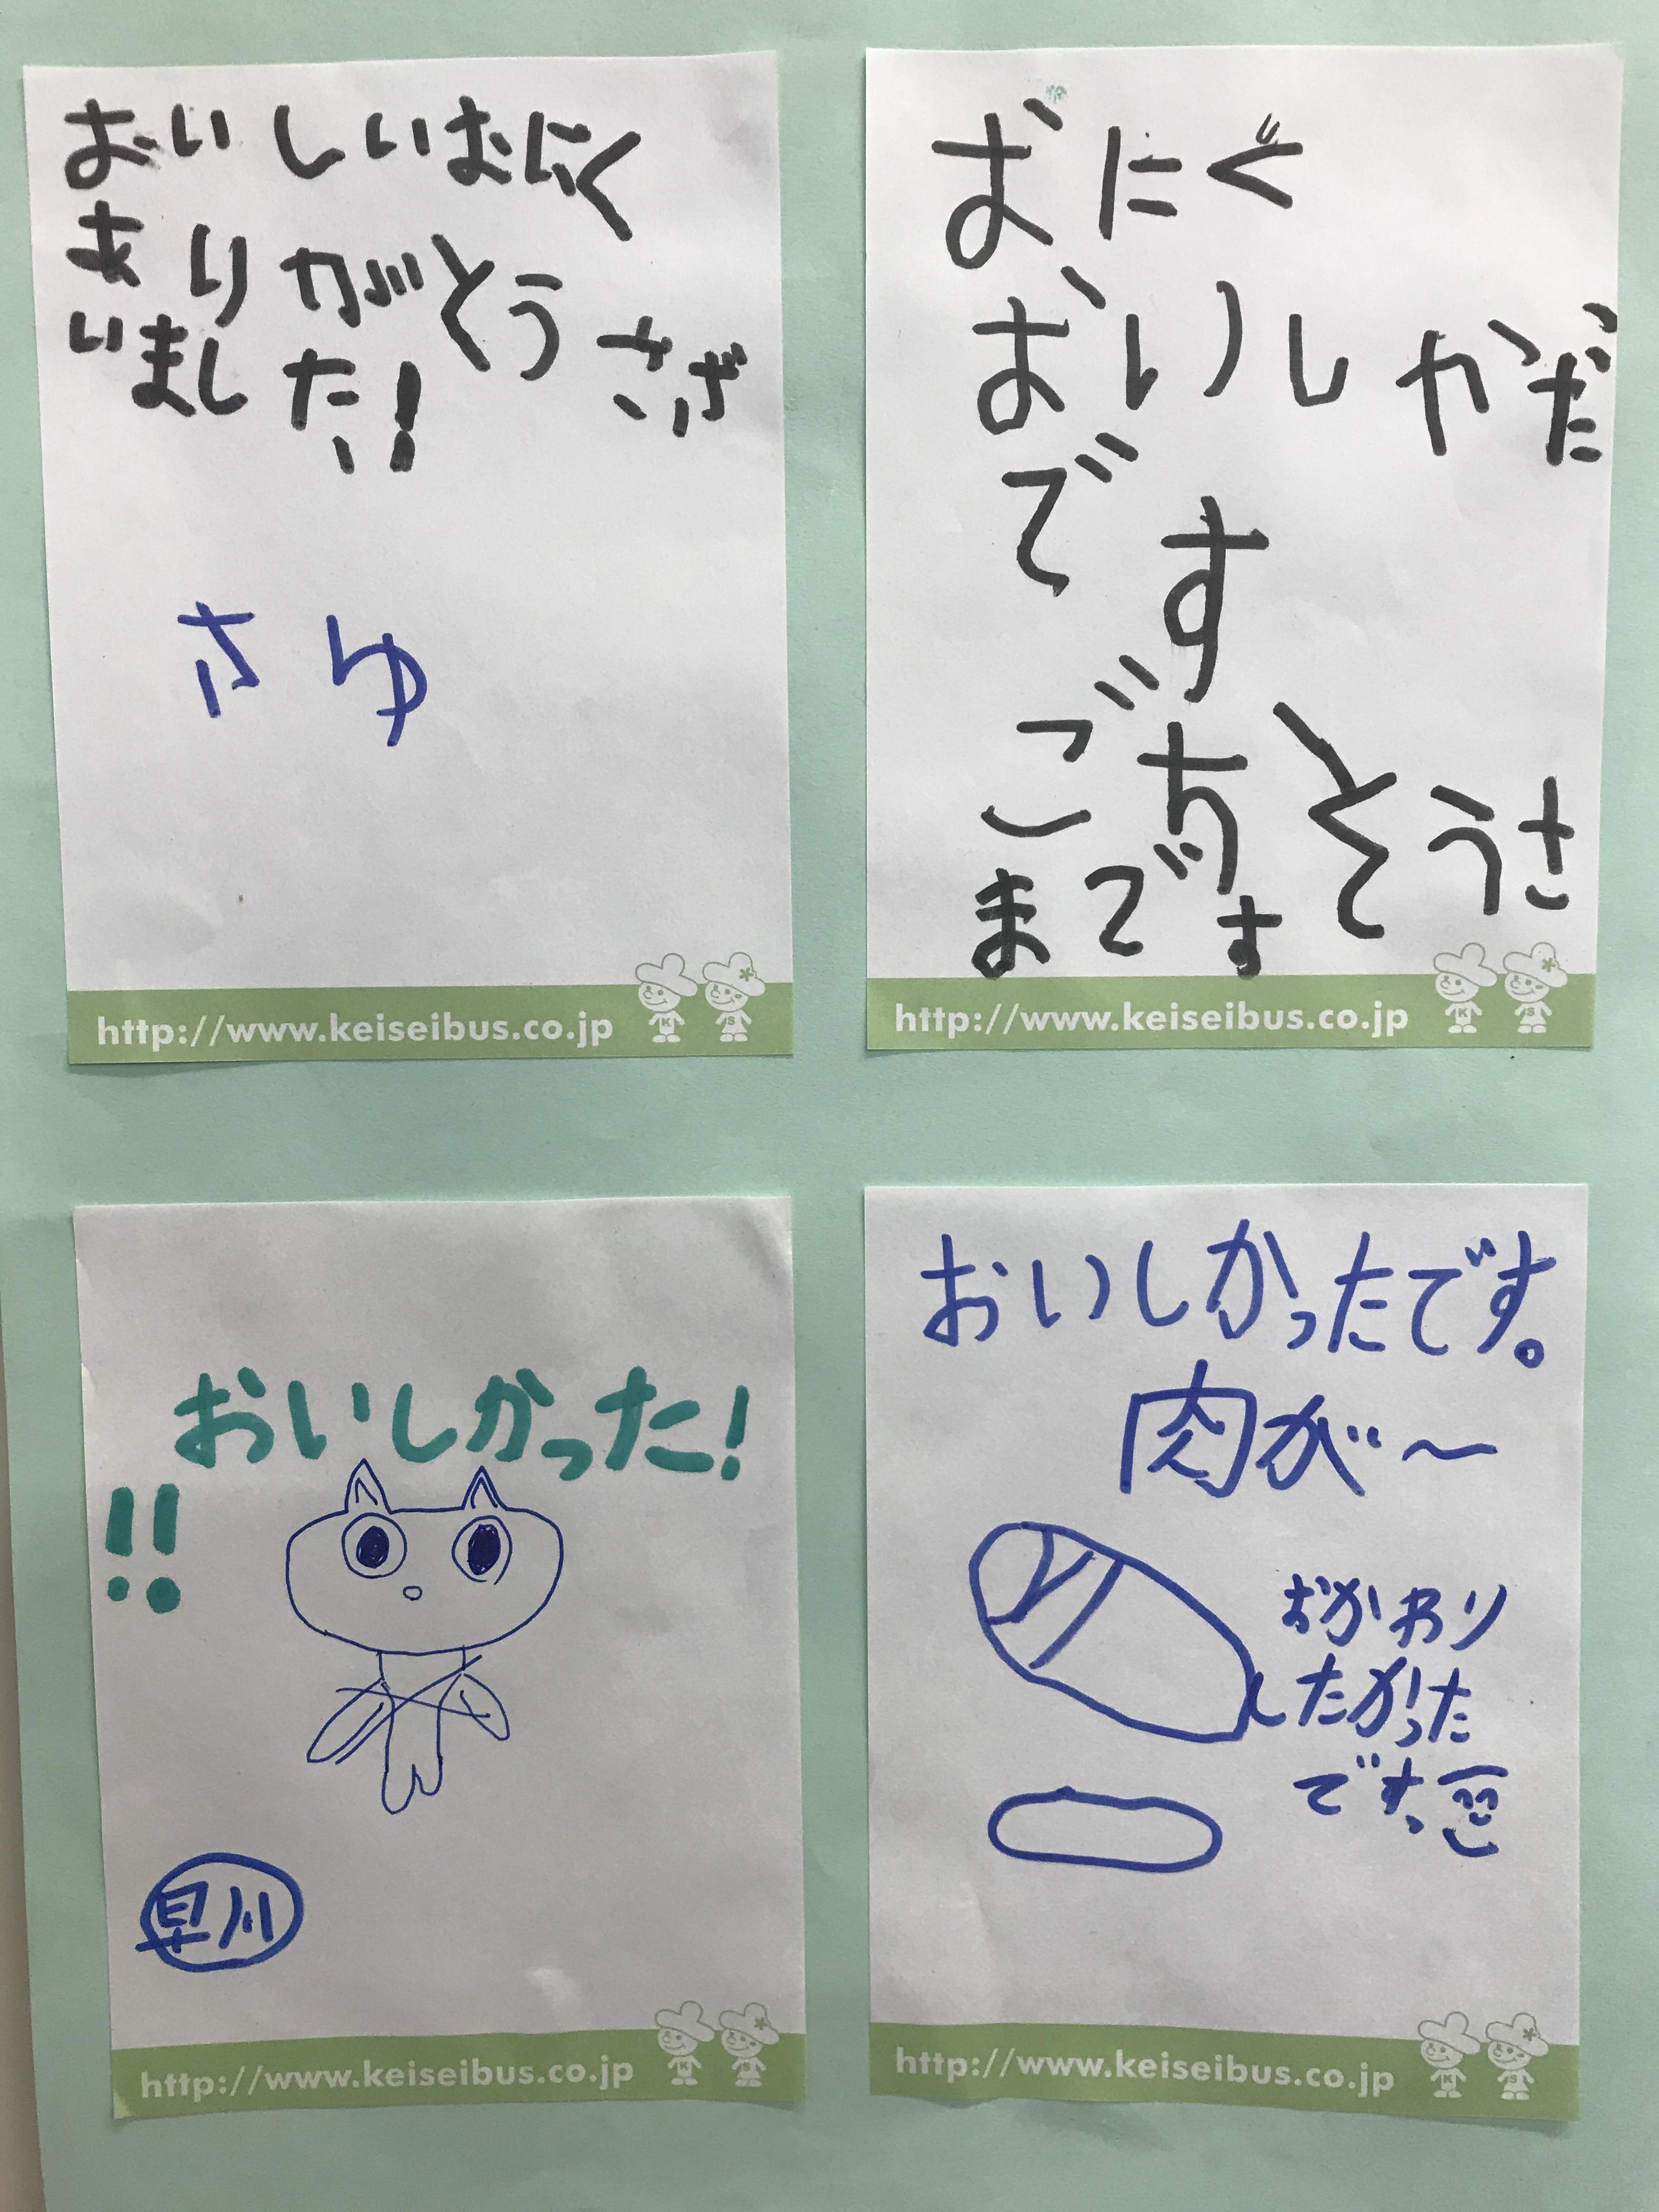 おいしいおにく
ありがとうさざ
いました!
さゆ
http://www.keiseibus.co.jp
K
S
おにぐ
おいしかだ
です
ごちそうさ
まです
http://www.keiseibus.co.jp
K
S
おいしかった!
!!
早川
http://www.keiseibus.co.jp
K
S
おいしかったです。
肉が～
おかわり
したかった
です。
http://www.keiseibus.co.jp
K
S